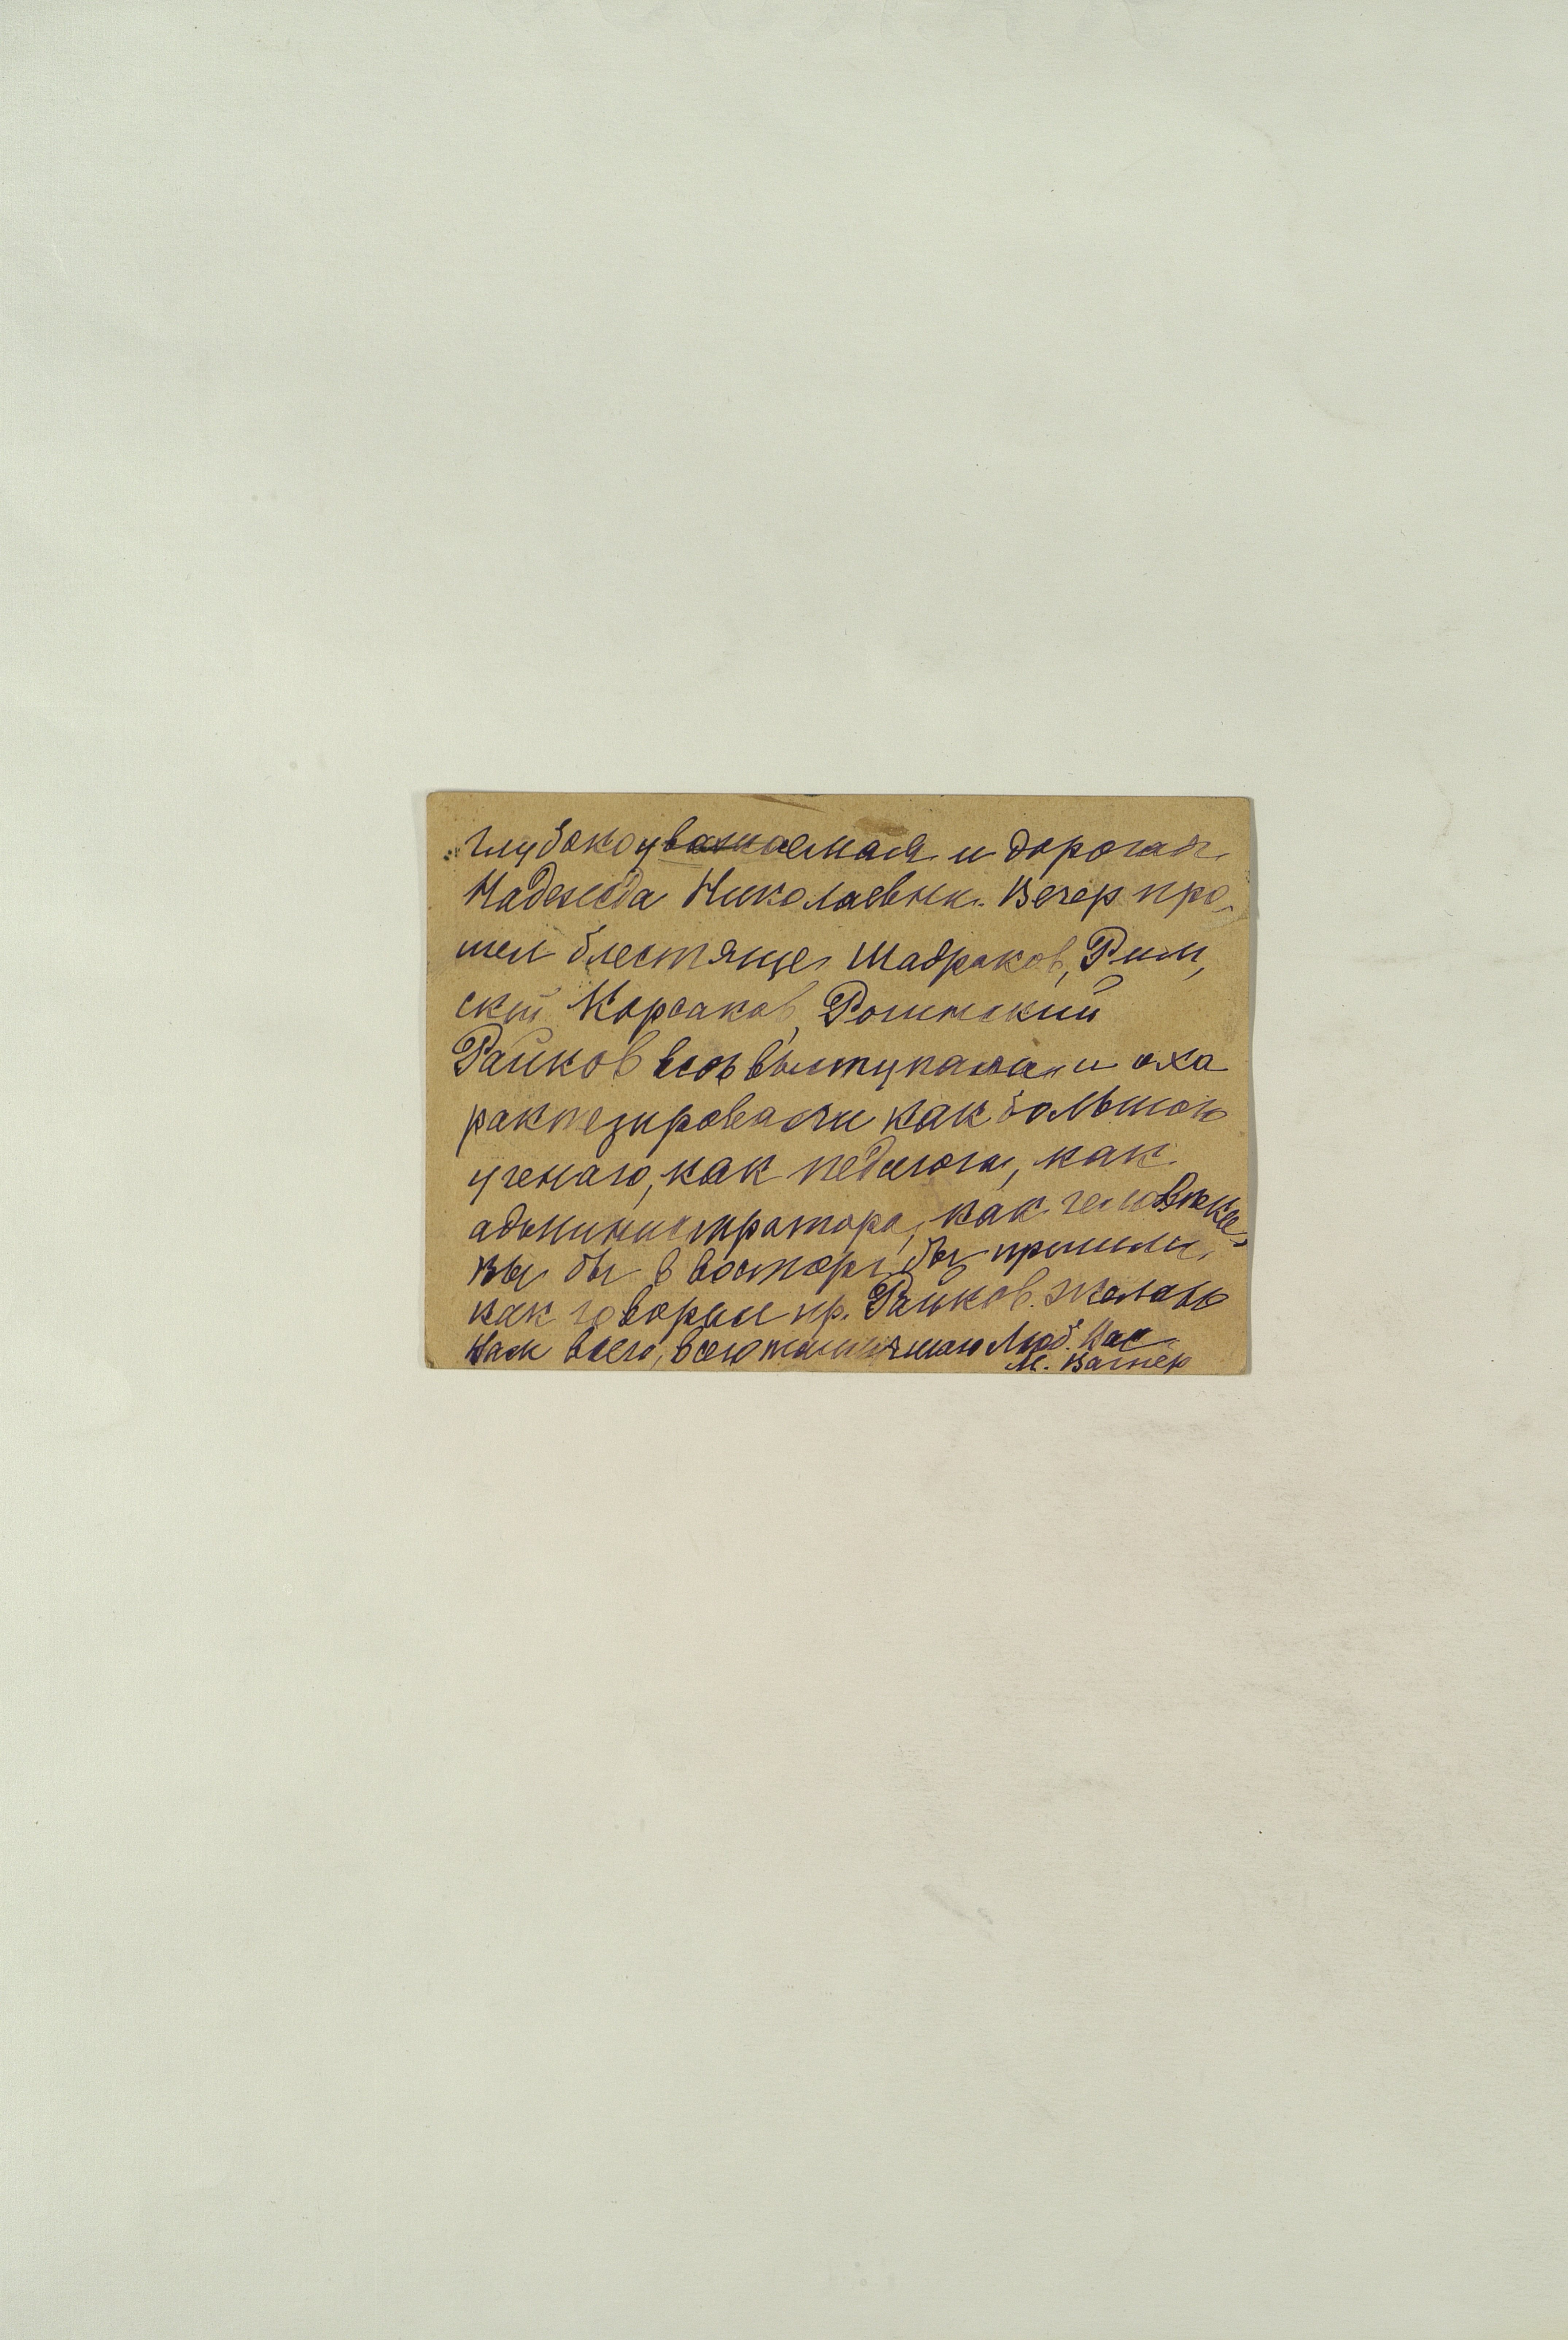 Глубокоуважаемая и дорогая
Надежда Николаевна. Вечер про-
шел блестяще. Шафраков, Рим,
ский Корсаков,
Райков все выступали и оха
рактезировали как большого
ученаго, как педагога, как
администратора, как человека,
Вы бы в восторг бы пришли,
как говорил пр. Райков. Желаю
Вам всего, всего Люб. Вас
М. Вагнер